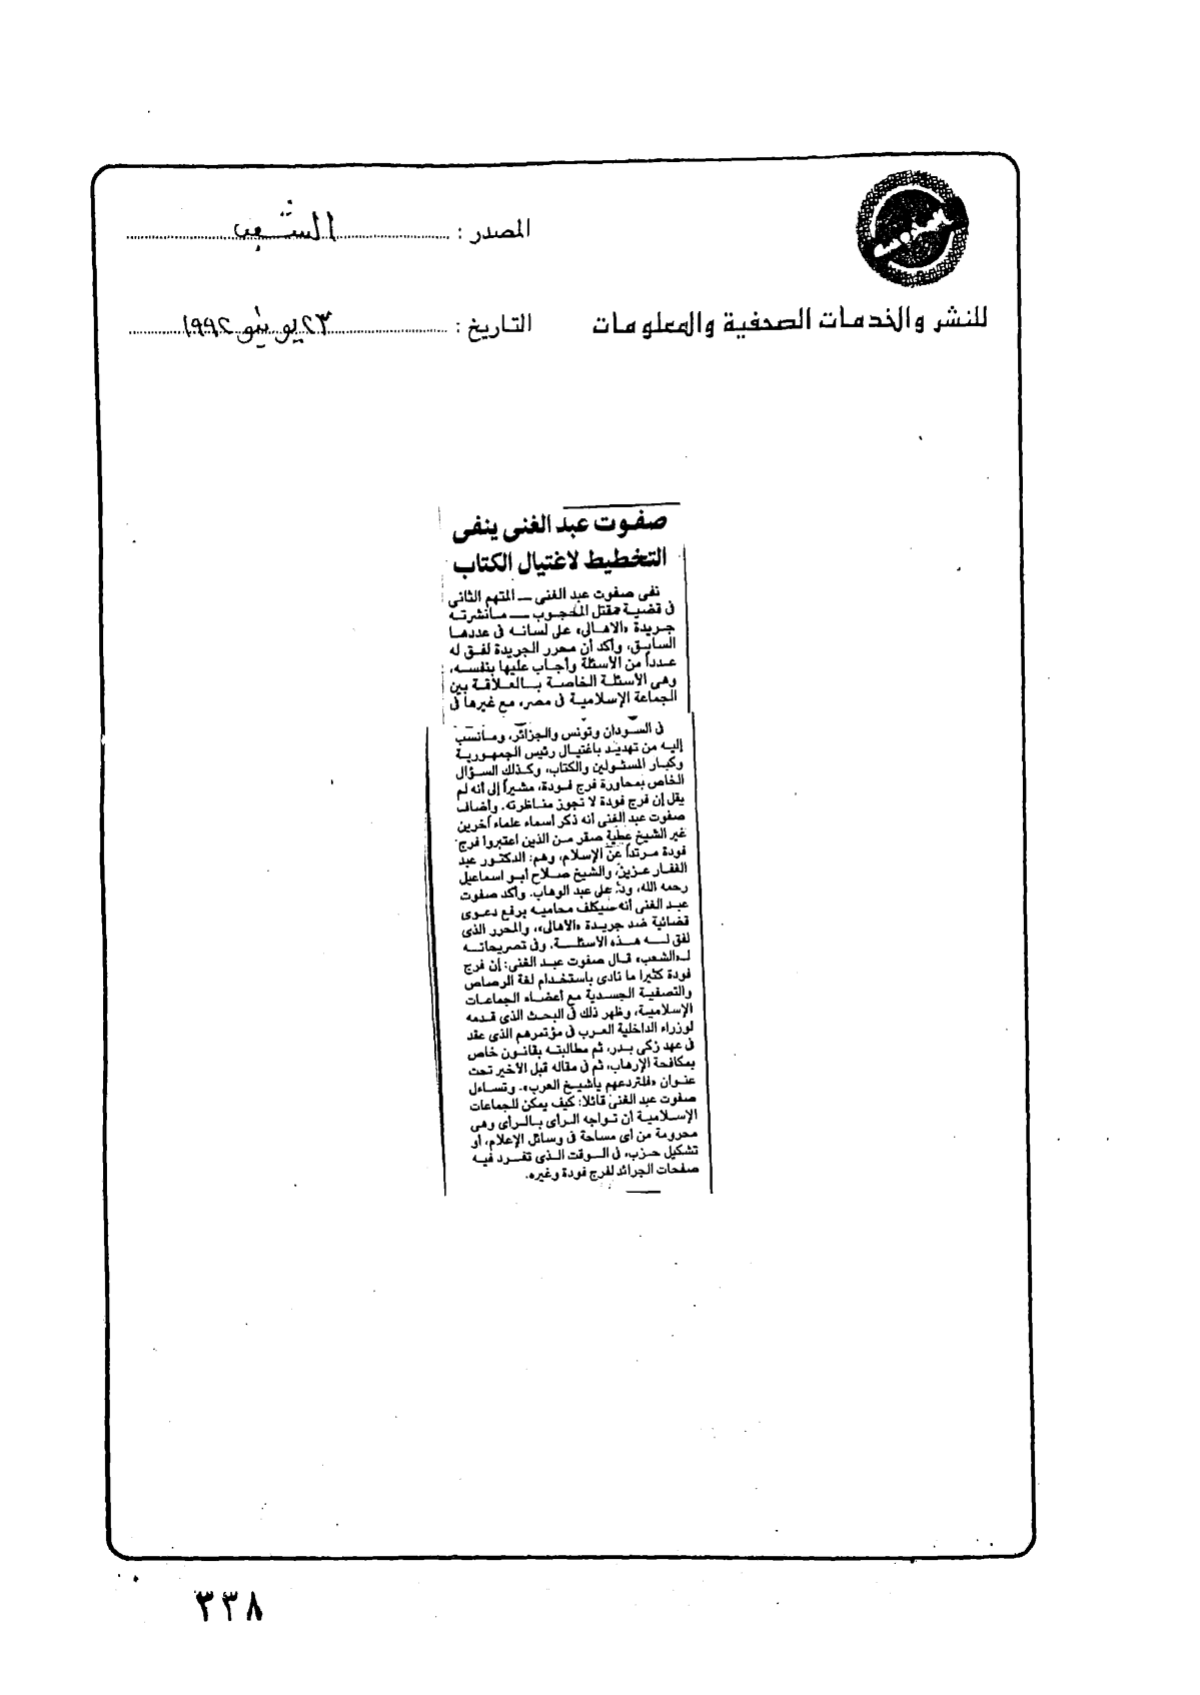 المصدر : الشعب
للنشر والخدمات الصحفية والمعلومات
التاريخ : ٢٣ يونيو ١٩٩٢
صفوت عبد الغنى ينفى
التخطيط لاغتيال الكتاب
نفى صفوت عبد الغنى ــ المتهم الثانى
فى قضية مقتل المحجوب ــ مانشرته
جريدة «الاهالى» على لسانه فى عددها
السابق، وأكد أن محرر الجريدة لفق له
عدداً من الأسئلة وأجاب عليها بنفسه،
وهى الأسئلة الخاصة بالعلاقة بين
الجماعة الإسلامية فى مصر، مع غيرها فى
فى السودان وتونس والجزائر، ومانسب
إليه من تهديد باغتيال رئيس الجمهورية
وكبار المسئولين والكتاب، وكذلك السؤال
الخاص بمحاورة فرج فودة، مشيراً إلى أنه لم
يقل إن فرج فودة لا تجوز مناظرته. وأضاف
صفوت عبد الغنى أنه ذكر اسماء علماء آخرين
غير الشيخ عطية صقر من الذين اعتبروا فرج
فودة مرتداً عن الإسلام، وهم: الدكتور عبد
الغفار عزيز، والشيخ صلاح أبو اسماعيل
رحمه الله، ود. على عبد الوهاب. وأكد صفوت
عبد الغنى أنه سيكلف محاميه برفع دعوى
قضائية ضد جريدة «الأهالى»، والمحرر الذى
لفق له هذه الأسئلة. وفى تصريحاته
لـ«الشعب» قال صفوت عبد الغنى: إن فرج
فودة كثيرا ما نادى باستخدام لغة الرصاص
والتصفية الجسدية مع أعضاء الجماعات
الإسلامية، وظهر ذلك فى البحث الذى قدمه
لوزراء الداخلية العرب فى مؤتمرهم الذى عقد
فى عهد زكى بدر، ثم مطالبته بقانون خاص
بمكافحة الإرهاب، ثم فى مقاله قبل الأخير تحت
عنوان «فلتردعهم ياشيخ العرب». وتساءل
صفوت عبد الغنى قائلا: كيف يمكن للجماعات
الإسلامية أن تواجه الرأى بالرأى وهى
محرومة من أى مساحة فى وسائل الإعلام، أو
تشكيل حزب، فى الوقت الذى تفرد فيه
صفحات الجرائد لفرج فودة وغيره.
٣٣٨